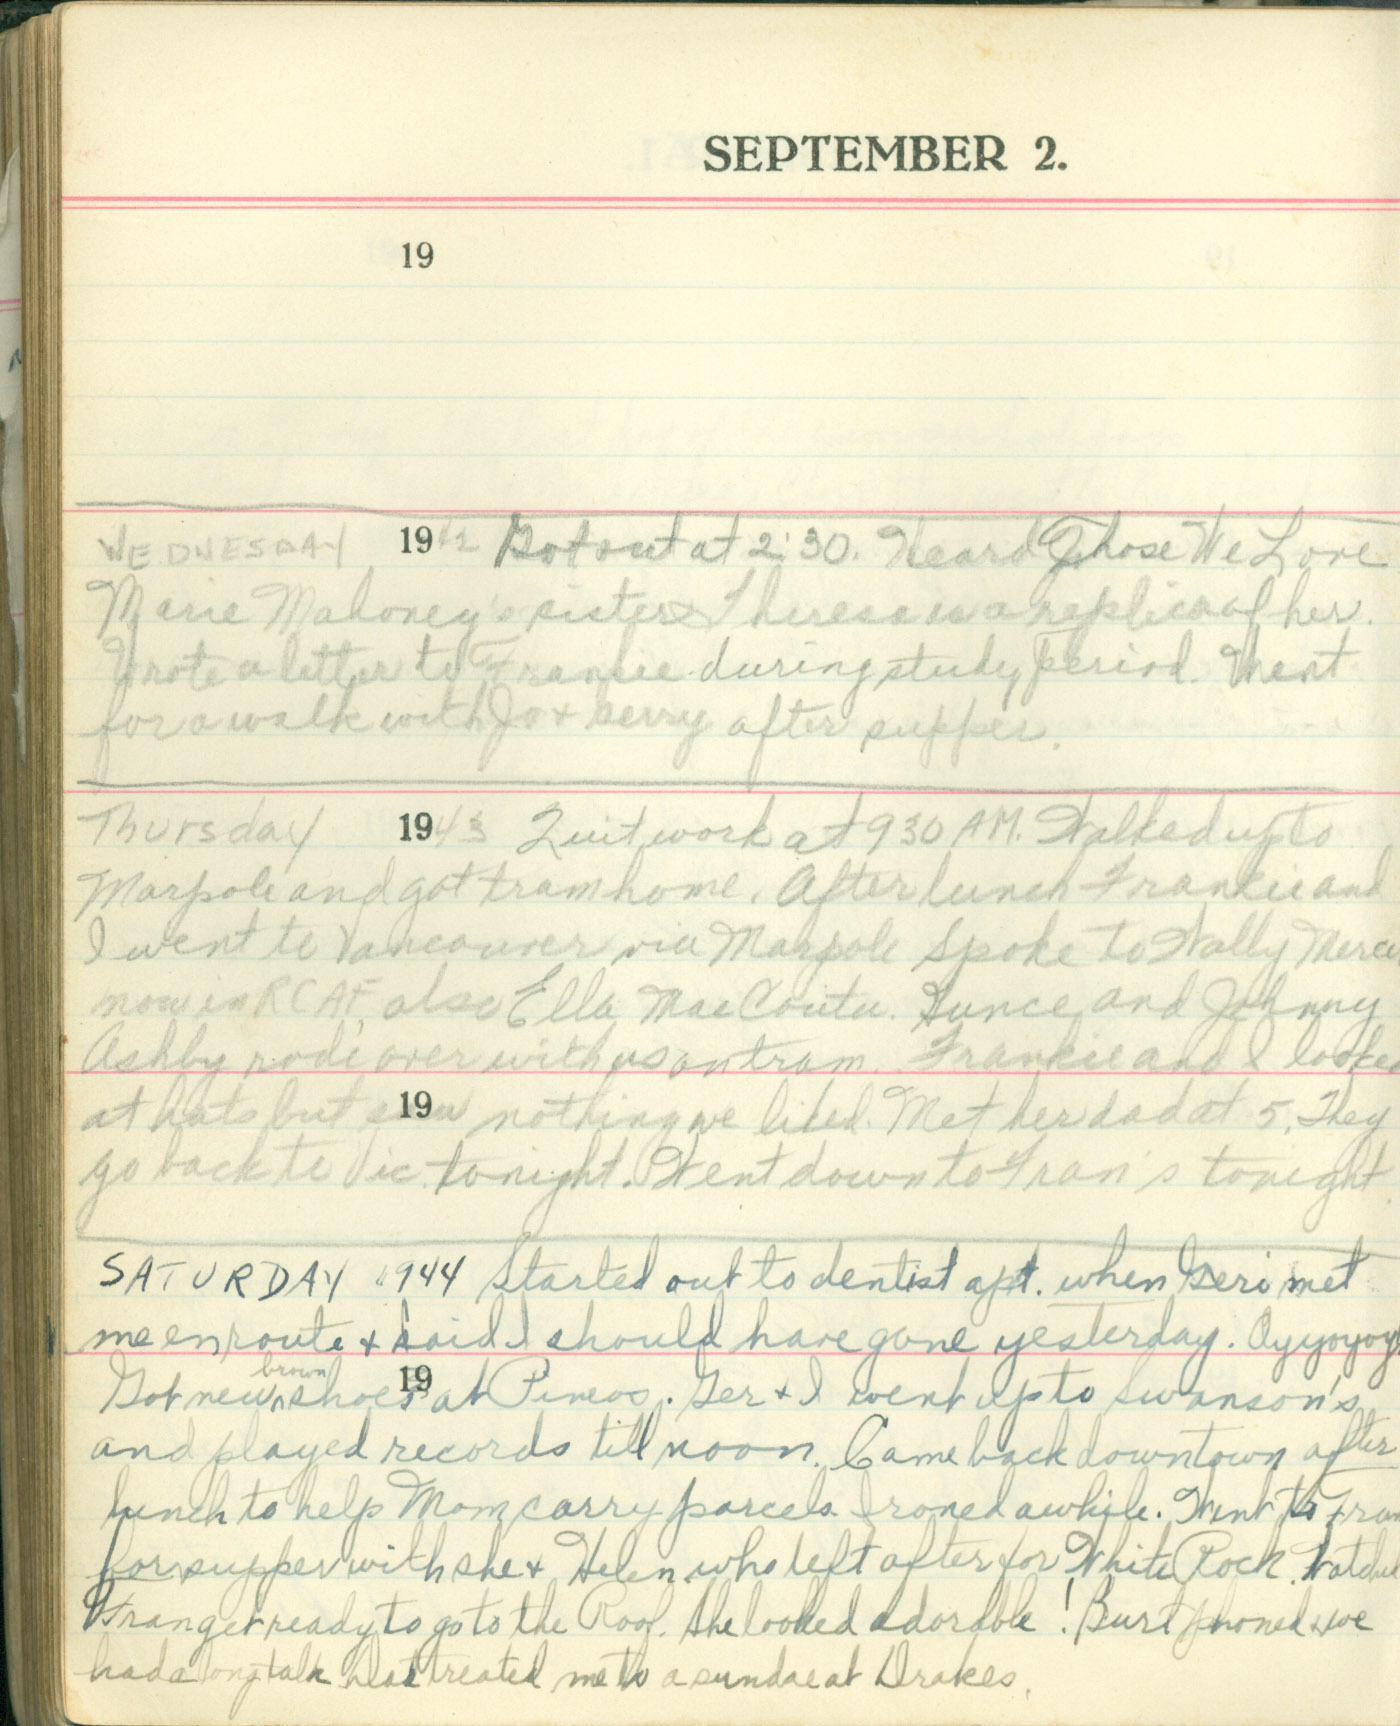 SEPTEMBER 2.
19
WEDNESDAY 1942 Got out at 2:30. Heard Those We Love
Marie Mahoney's sister Therese is a replica of her.
Wrote a letter to Frankie during study period. Went
for a walk with Jo & Gerry after supper.
Thursday 1943 Quit work at 930 AM. Walked up to
Marpole and got tram home. After lunch Frankie and
I went to Vancouver via Marpole Spoke to Wally
now in RCAF, also Ella Mae and Johnny
Ashby rode over with us on tram. Frankie and I looked
at hats but saw 19 nothing we liked. Met her dad at 5. They
go back to Vic. tonight. Went down to Fran's tonight.
SATURDAY 1944 Started out to dentist apt. when Geri met
me enroute & said I should have gone yesterday. Oyyoyoy
Got new brown shoes 19 at Pineos. Ger & I went up to Swanson's
and played records till noon. Came back downtown after
lunch to help Mom carry parcels. Ironed awhile. Went to Fran
for supper with she & Helen who left after for White Rock. Watched
Fran get ready to go to the Roof. She looked adorable! Burt phoned & we
had a long talk treated me to a sundae at Drakes.